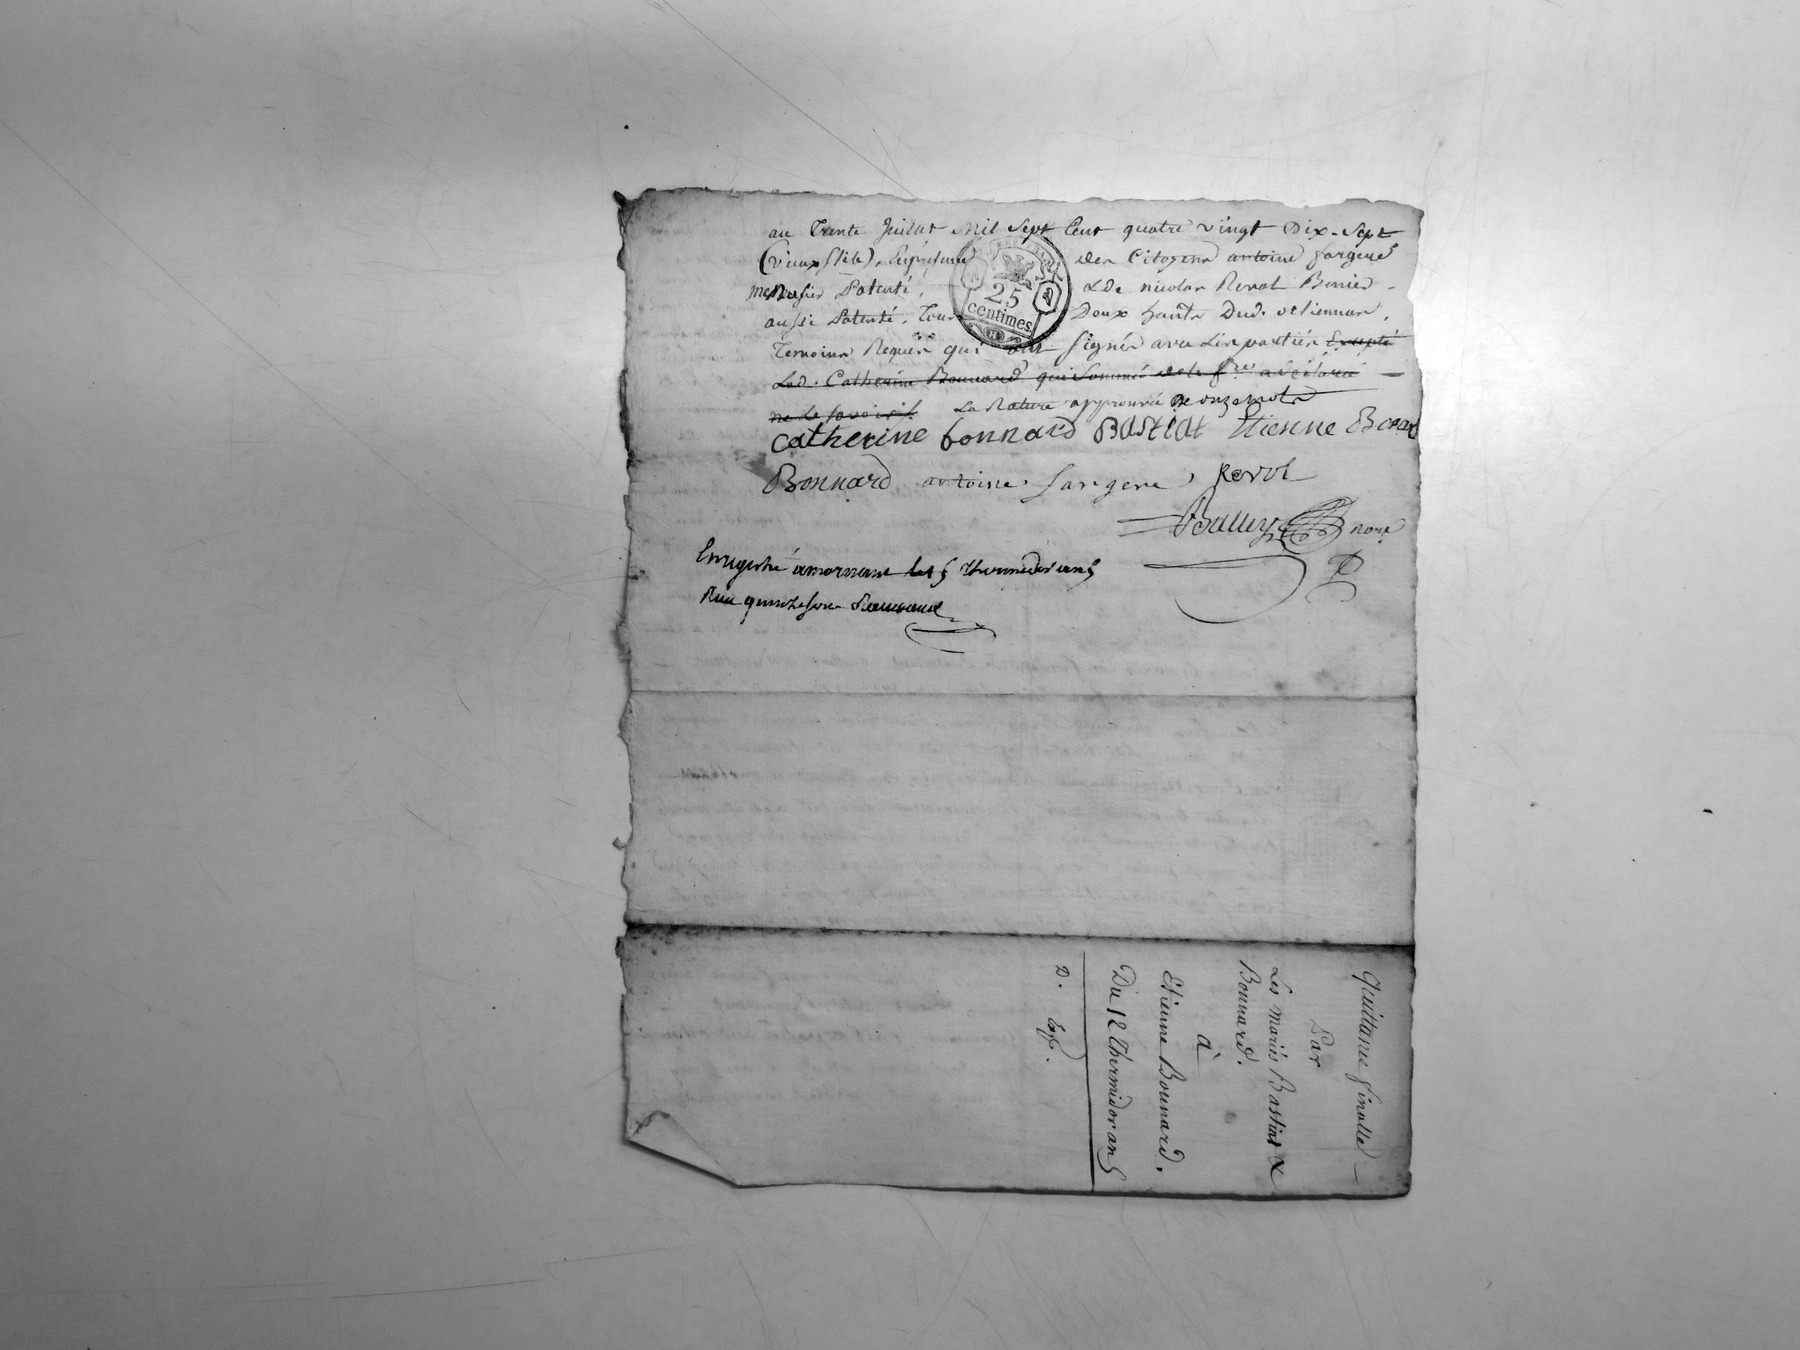 au Trente Juillet Mil Sept Cent quatre vingt Dix-Sept
(vieux stile). En présence des Citoyens antoine fargere
menusier Patenté, & De nicolas Revol
aussi Patenté, Tous Deux hants Dud.
Témoins Requis qui ont signés avec Les parties Excepté
Lad. Catherine Bonnard qui Sommé de le f.re a déclaré
ne Le savoir /. La Rature approuvée De onze mots
Catherine bonnard Bastiat Etienne Bonard
Bonnard antoine fargere, Revol
25
centimes
Balley nore
Enregistré a mornant le 15 Thermidor an 5
Reçu
Quittance finalle
Par
Les Mariés Bastiat &
Bonnard.
à
Etienne Bonnard.
Du 12 Thermidor an 5
D. Exp.